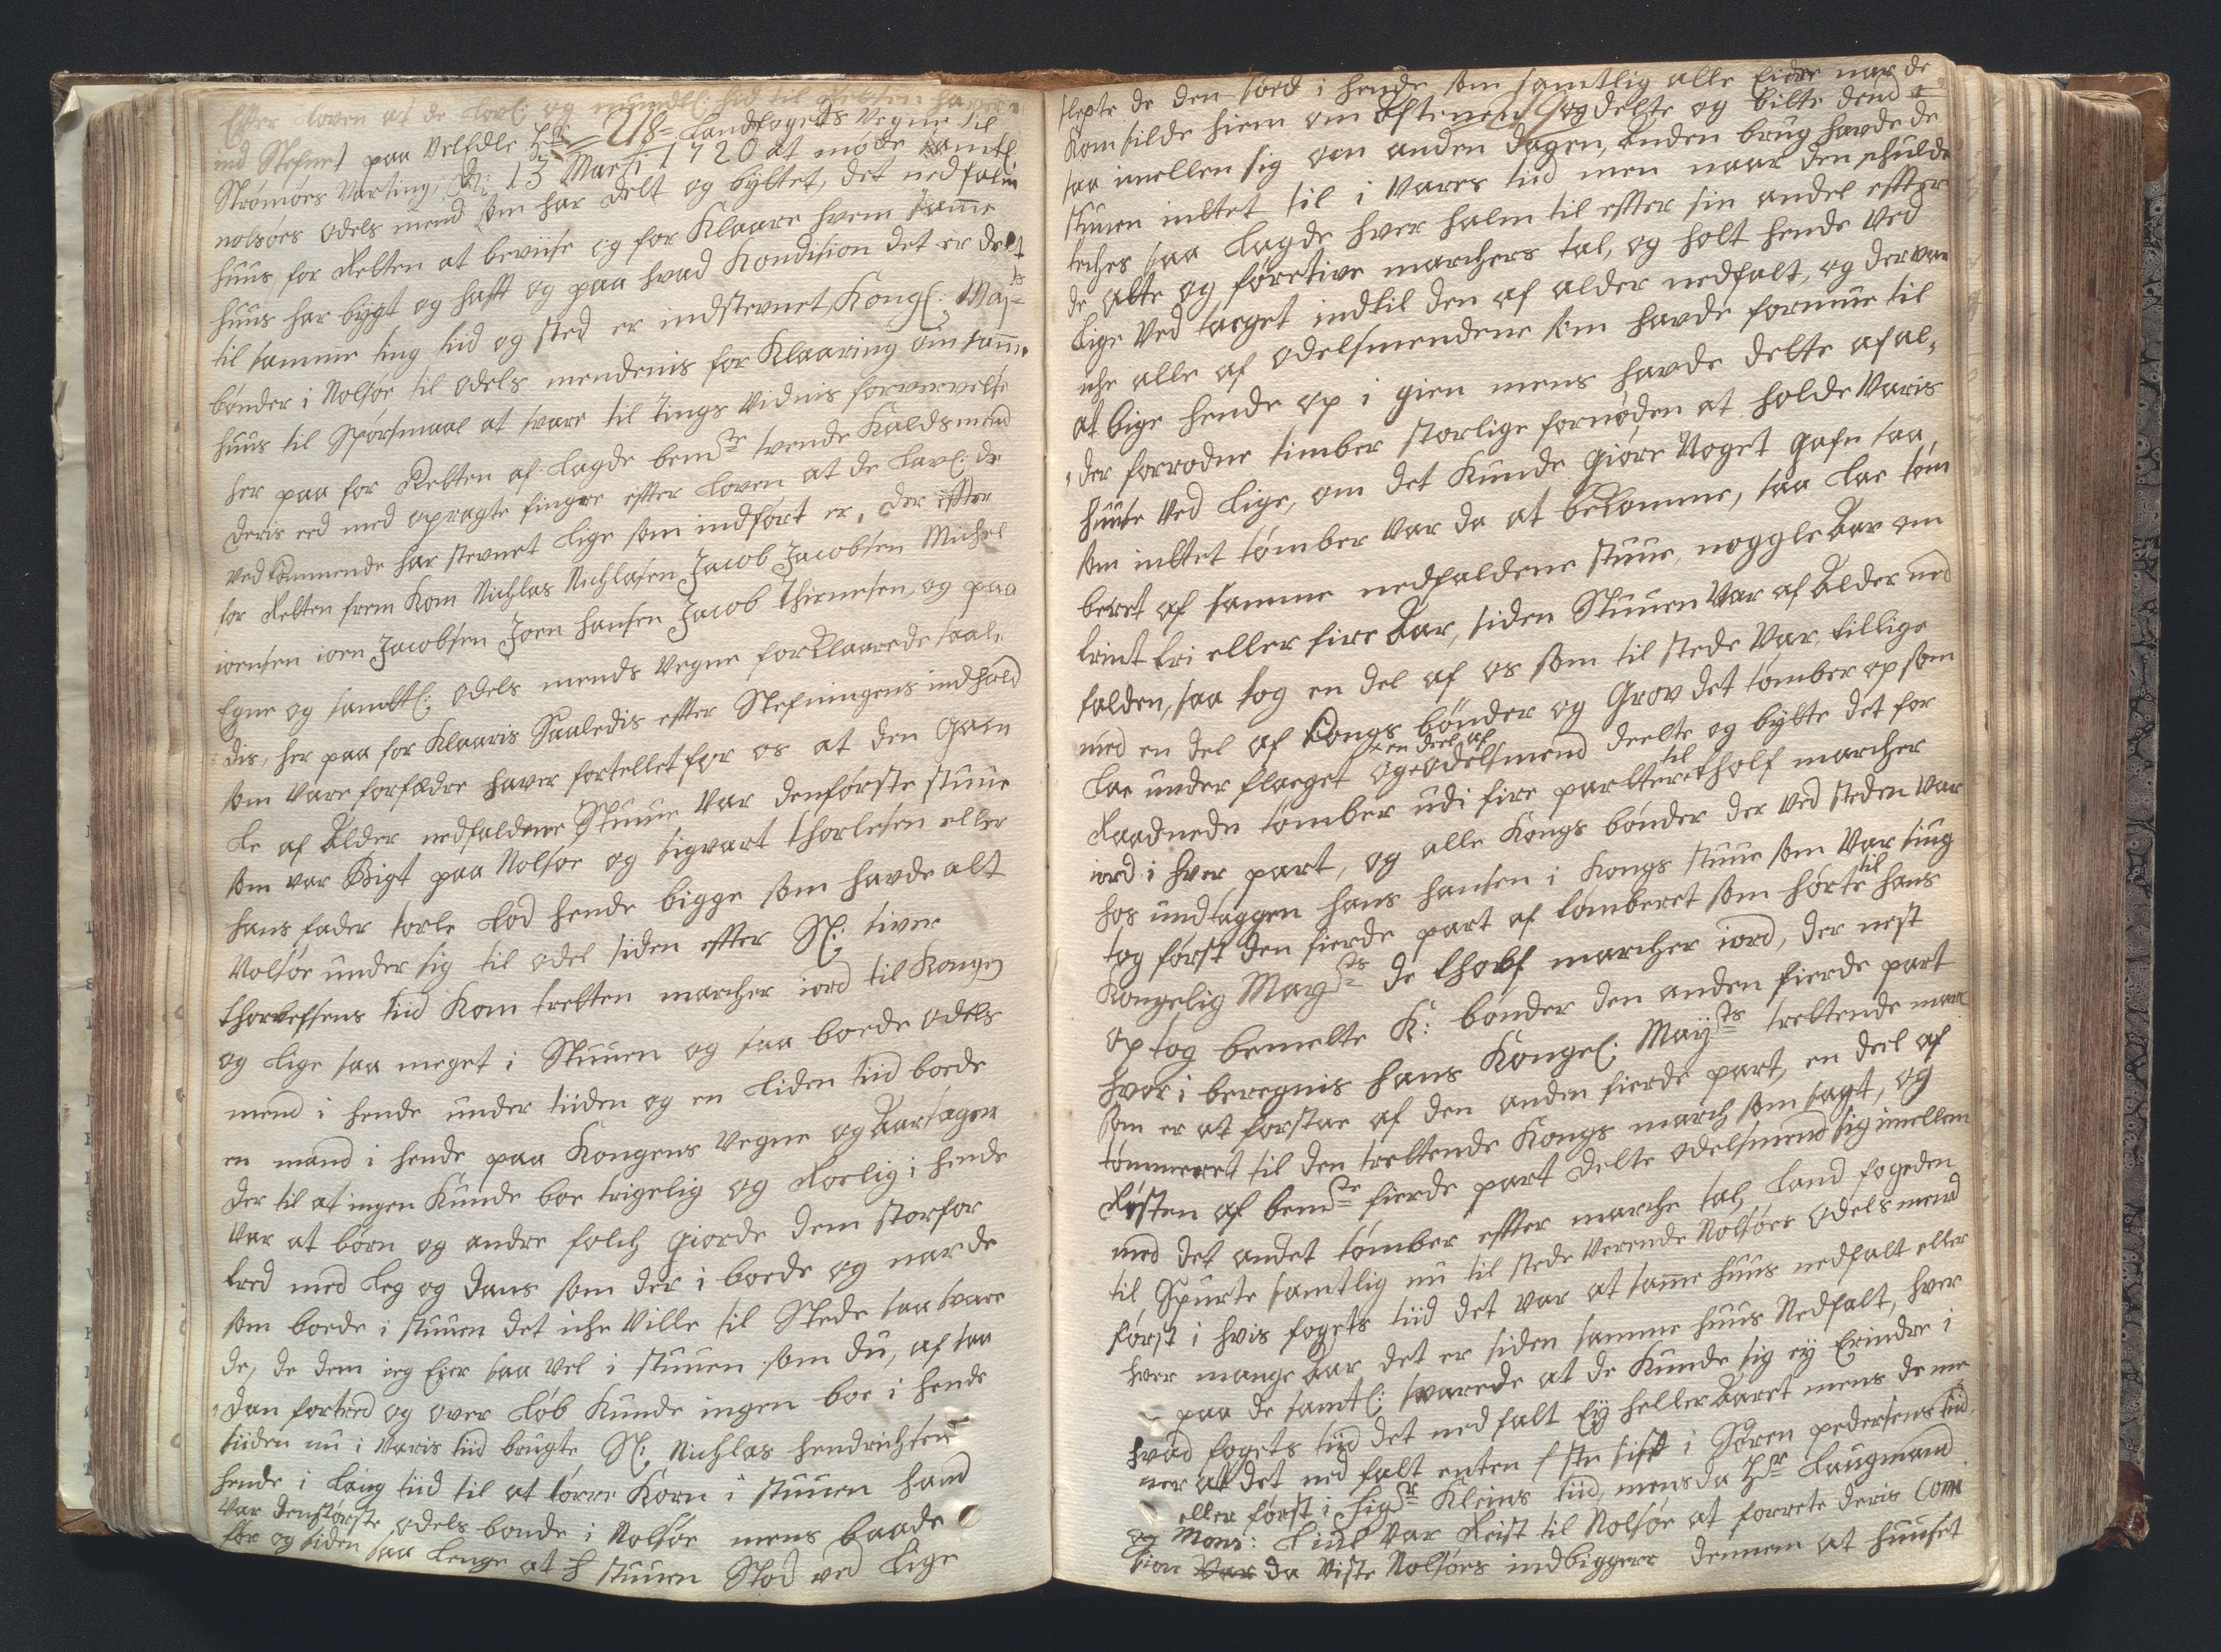 Efter loven at de lovl: og mundtl: hid til Retten haver
ind Stefnet paa Velædle Hr =218= Landfogets Vegne til
Strømøes Varting, d: 13 Marti 1720 at møde samtl:
nolsøes odels mend som har delt og byltet, det nedfaln
huus for Retten at beviise og for Klaare hvem samme
huus har bygt og hafft og paa hvad Kondision det er delt
til samme ting tiid og sted er indstevnet Kongl: Mayts
bønder i Nolsøe til odels mendenis for Klaaring om samme
huus til Spørsmaal at svare til Tings Vidnis forvervelse
her paa for Retten af lagde bemte tvende Kaldsmend
deris eed med opragte fingre efter Loven at de Lovl: de
vedkommende har stevnet lige som indført er, der effter
for Retten frem kom Nichlas Nichlasen Jacob Jacobsen Michel
ioensen ioen Jacobsen Joen hansen Jacob Thirnesen, og paa
Egne og samttl: odels mends vegne forklaarede saale
dis, her paa for Klaaris Saaledis effter Stefningens indhold
som Vare forfædre haver fortellet for os at den Gam
le af Alder nedfaldene Stuue Var den første stuue
som var Bigt paa Nolsøe og sigvart Thorlesen eller
hans fader torle Lod hende bigge som havde alt
Nolsøe under sig til odel siden effter Sl: siver
thorlefsens tiid Kom tretten marcher iord til Kongen
og lige saa meget i Stuuen og saa boede odels
mend i hende under tiiden og en liden tiid boede
en mand i hende paa Kongens vegne og Aarsagen
der til at ingen Kunde boe trigelig og Roelig i hende
Var at børn og andre folch giorde dem stor for
tred med leg og dans som der i boede og nar de
som boede i stuuen det iche ville til Stede saa svare
de, de dem ieg Eier saa vel i stuuen som du, af saa
dan fortred og over Løb Kunde ingen boe i hende
siiden nu i varis tiid brugte Sl: Nichlas hendrichsen
hende i lang tiid til at tørre Korn i stuuen hand
Var den største odels bonde i Nolsøe mens baade
før og siden saa lenge at stuuen Stod ved lige
slepte de den soed i hende som samtlig alle Eidre nar de
Kom silde hiem om Aftenen =219= og delte og bilte dend
saa imellen sig om anden dagen, Anden brug havde de
stuuen inttet til i Vares tiid men naar den schulde
teches saa lagde hver halm til effter sin andel effter
de otte og føretive marchers tal, og holt hende ved
lige ved taget indtil den af alder nedfalt, og der var
iche alle af odelsmendene som havde formue til
at bige hende op i gien mens havde dette afal,
der forrodne timber storlige fornøden at holde Varis
huuse ved lige, om det Kunde giøre Noget gafn saa
som inttet tømber var da at bekomme, saa lae tøm
beret af samme nedfaldene stuue, noggle Aar om
trint tri eller fire Aar, siden Stuuen var af Alder ned
falden, saa tog en del af os som til stede var, tillige
med en del af Kongs bønder og Grov det tømber op som
lae under flaeget og en deel af odelsmend deelte og bylte det for
Raadnede tømber udi fire partter til tholf marcher
iord i hver part, og alle Kongs bønder der ved steden var
hos undtaggen hans hansen i Kongs stuue som var siug
tog først den fierde part af tømberet som hørte til hans
Kongelig Mayts de tholf marcher iord, der nest
op tog bemelte K: bønder den anden fierde part
hvor i beregnis hans Kongel: Mayts trettende marc
som er at forstae af den anden fierde part, en deel af
tømmeret til den trettende Kongs march som sagt, og
Resten af bemte fierde part delte odelsmend sig imellem
med det andet tømber effter marche tal, Land fogeden
til Spurte samtlig nu til stede verende Nolsøes odelsmend
først i hvis fogets tiid det var at samme huus nedfalt eller
hvor mange aar det er siden samme huus Nedfalt, hver
paa de samtl: svarede at de Kunde sig ey Erindre i
hvad fogets tiid det ned falt Ey heller Aaret mens de me
ner at det ned falt enten sist i Søren pedersens tiid,
eller først i Sigr Kleins tiid, mens da Hr Laugmand
og Mons: Liuel var Reist til Nolsøe at forrete deris Com
sion var da viste Nolsøes indbiggere dennem at huuset